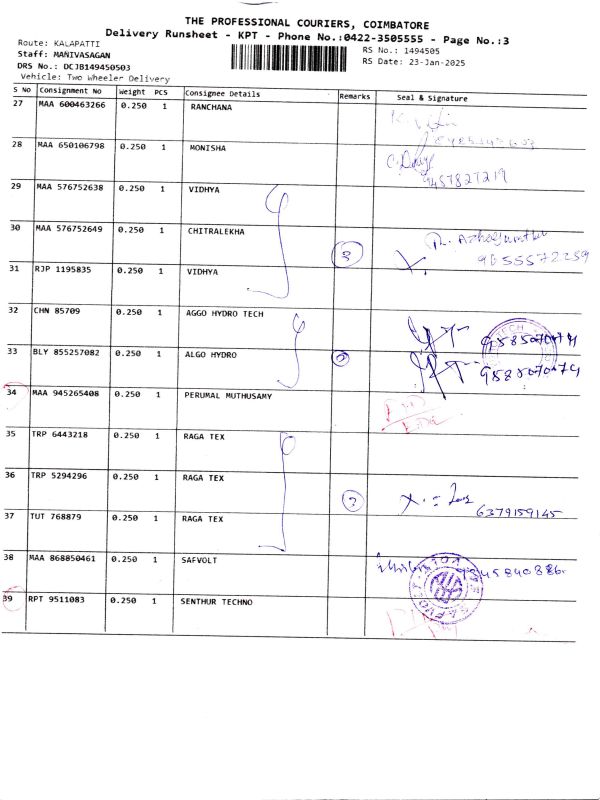 THE PROFESSIONAL COURIERS, COIMBATORE
Delivery Runsheet - KPT - Phone No.:0422-3505555 - Page No.:3
Route: KALAPATTI
Staff: MANIVASAGAN
DRS No.: DCJB149450503
Vehicle: Two Wheeler Delivery
RS No.: 1494505
RS Date: 23-Jan-2025
S No Consignment No Weight PCS Consignee Details Remarks Seal & Signature
27 MAA 600463266 0.250 1 RANCHANA
28 MAA 650106798 0.250 1 MONISHA
9457827219
29 MAA 576752638 0.250 1 VIDHYA
30 MAA 576752649 0.250 1 CHITRALEKHA 3
9055572259
31 RJP 1195835 0.250 1 VIDHYA
32 CHN 85709 0.250 1 AGGO HYDRO TECH
33 BLY 855257082 0.250 1 ALGO HYDRO
34 MAA 945265408 0.250 1 PERUMAL MUTHUSAMY
35 TRP 6443218 0.250 1 RAGA TEX
36 TRP 5294296 0.250 1 RAGA TEX
6379159145
37 TUT 768879 0.250 1 RAGA TEX
38 MAA 868850461 0.250 1 SAFVOLT
39 RPT 9511083 0.250 1 SENTHUR TECHNO